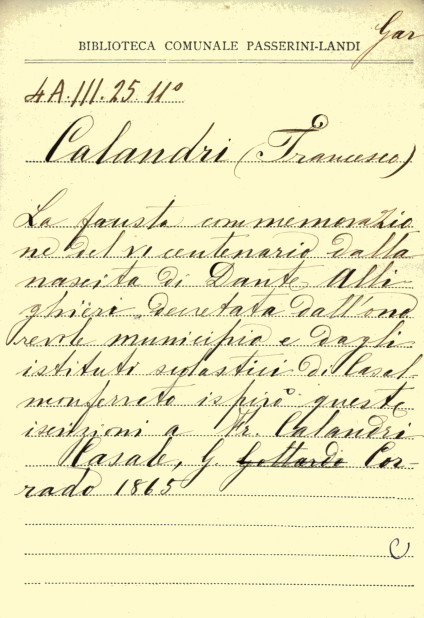 Gar
BIBLIOTECA COMUNALE PASSERINI-LANDI
4A.III.25.11º
Calandri (Francesco)
La fausta commemorazio
ne del VI centenario dalla
nascita di Dante Alli
ghieri, decretata dall'ono
revole municipio e dagli
istituti scolastici di Casal
monferrato ispirò queste
iscrizioni a Fr. Calandri
Casale, G. Gottardo Cor-
rado 1865
C